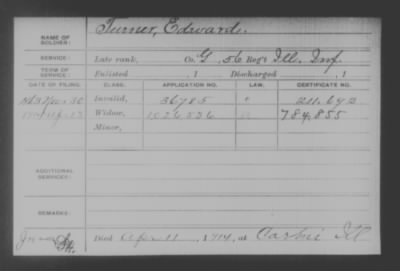 NAME OF SOLDIER: Turner, Edward.
SERVICE: Late rank, Co. G, 56 Reg't Ill. Inf.
TERM OF SERVICE: Enlisted , 1 Discharged , 1
DATE OF FILING. CLASS. APPLICATION NO. LAW. CERTIFICATE NO.
Invalid, 36785
Widow, 1026526 784,855
Minor,
ADDITIONAL SERVICES:
REMARKS:
Died Apr 11, 1914, at Ill